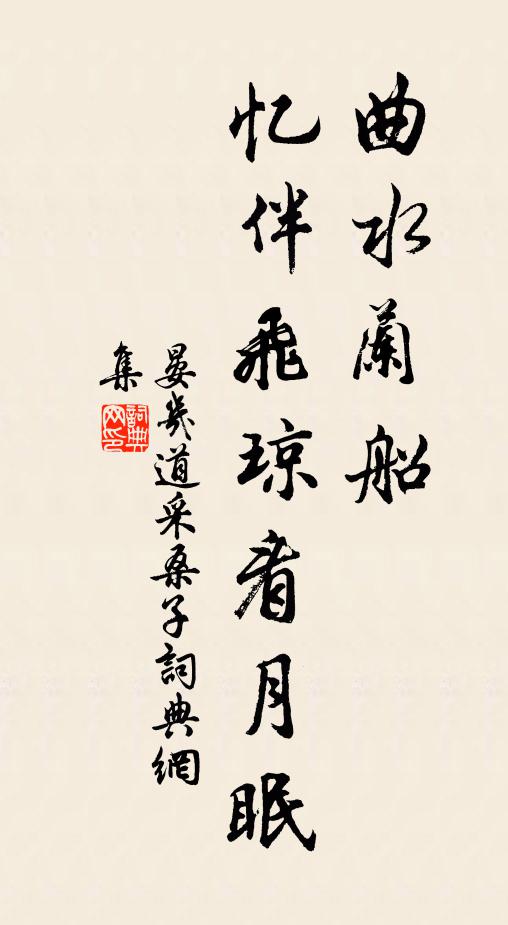 曲水蘭船
忆伴飛琼看月眠
晏幾道采桑子詞典網
集
詞典
网印